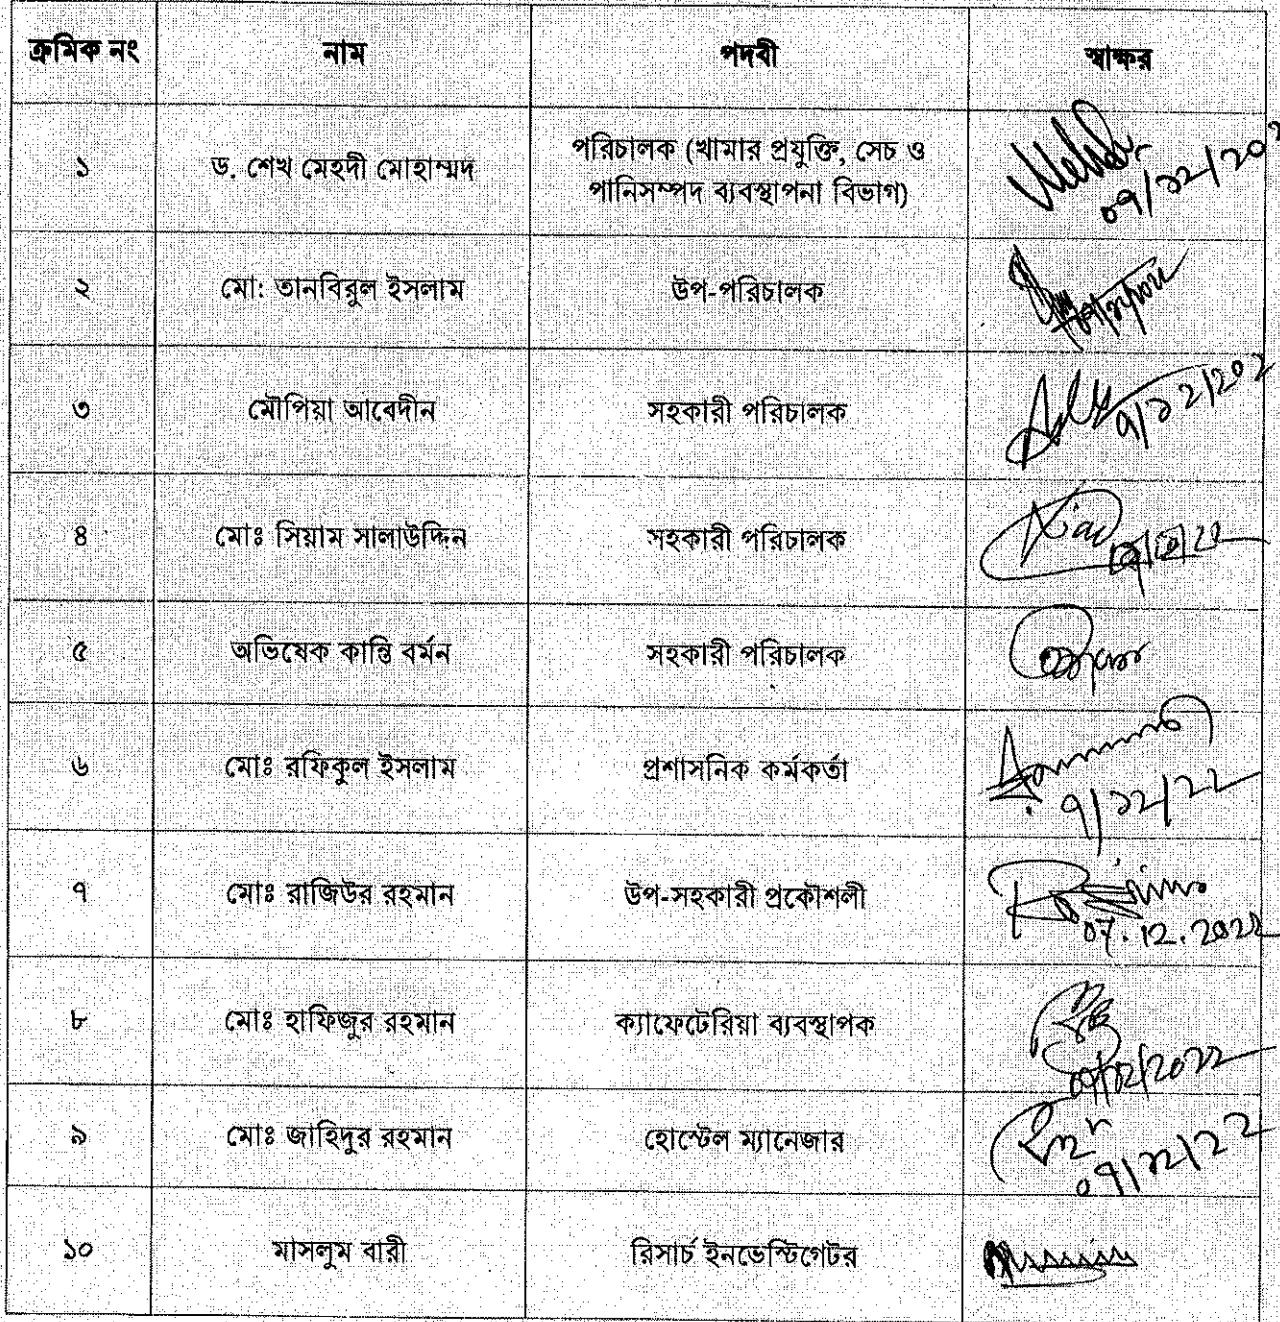 ক্রমিক নং নাম পদবী স্বাক্ষর
১ ড. শেখ মেহদী মোহাম্মদ পরিচালক (খামার প্রযুক্তি, সেচ ও
পানিসম্পদ ব্যবস্থাপনা বিভাগ)
২ মো: তানবিরুল ইসলাম উপ-পরিচালক
৩ মৌপিয়া আবেদীন সহকারী পরিচালক
৪ মোঃ সিয়াম সালাউদ্দিন সহকারী পরিচালক
৫ অভিষেক কান্তি বর্মন সহকারী পরিচালক
৬ মোঃ রফিকুল ইসলাম প্রশাসনিক কর্মকর্তা
৭ মোঃ রাজিউর রহমান উপ-সহকারী প্রকৌশলী
07.12.2022
৮ মোঃ হাফিজুর রহমান ক্যাফেটেরিয়া ব্যবস্থাপক
৯ মোঃ জাহিদুর রহমান হোস্টেল ম্যানেজার
১০ মাসলুম বারী রিসার্চ ইনভেস্টিগেটর